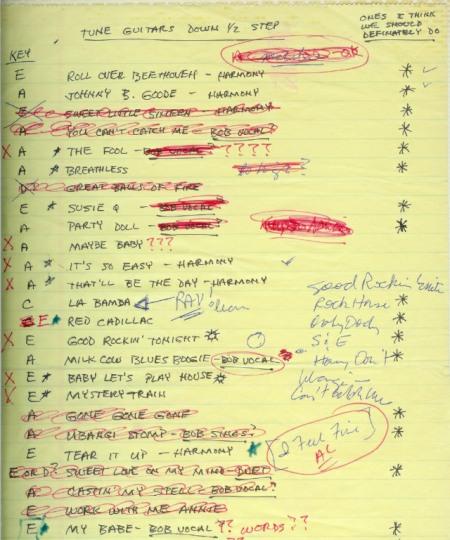 TUNE GUITARS DOWN 1/2 STEP
ONES I THINK
WE SHOULD
DEFINATELY DO
KEY
E ROLL OVER BEETHOVEN - HARMONY *
A JOHNNY B. GOODE - HARMONY *
E SWEET LITTLE SIXTEEN - HARMONY *
A YOU CAN'T CATCH ME - BOB VOCAL? *
X A * THE FOOL - BOB VOCAL ???? *
A * BREATHLESS *
D GREAT BALLS OF FIRE
E * SUSIE Q - BOB VOCAL *
A PARTY DOLL - BOB VOCAL *
X A MAYBE BABY ???
X A * IT'S SO EASY - HARMONY
X A * THAT'LL BE THE DAY - HARMONY
Good Rockin
C LA BAMBA RAY Rock House *
E * RED CADILLAC
X E GOOD ROCKIN' TONIGHT * *
A MILK COW BLUES BOOGIE - BOB VOCAL Honey Don't *
X E * BABY LET'S PLAY HOUSE *
E * MYSTERY TRAIN
A GONE GONE GONE *
A UBANGI STOMP - BOB SINGS? *
E TEAR IT UP - HARMONY *
I Feel Fine
E OR D? SWEET LOVE ON MY MIND - DUET *
A CASTIN' MY SPELL - BOB VOCAL?
E WORK WITH ME ANNIE
E * MY BABE - BOB VOCAL ?? WORDS?? *